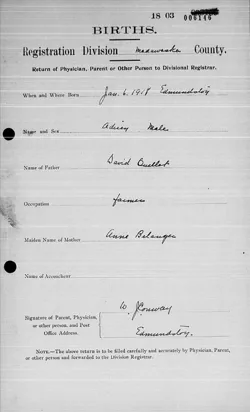 18 03 009146
BIRTHS.
Registration Division Madawaska County.
Return of Physician, Parent or Other Person to Divisional Registrar.
When and Where Born Jan. 6. 1918 Edmundston
Name and Sex Male
Name of Father David Ouellet
Occupation farmer
Maiden Name of Mother Anne Belanger
Name of Accoucheur
Signature of Parent, Physician,
or other person, and Post
Office Address.
W. Conway
Edmundston
NOTE.—The above return is to be filed carefully and accurately by Physician, Parent,
or other person and forwarded to the Division Registrar.